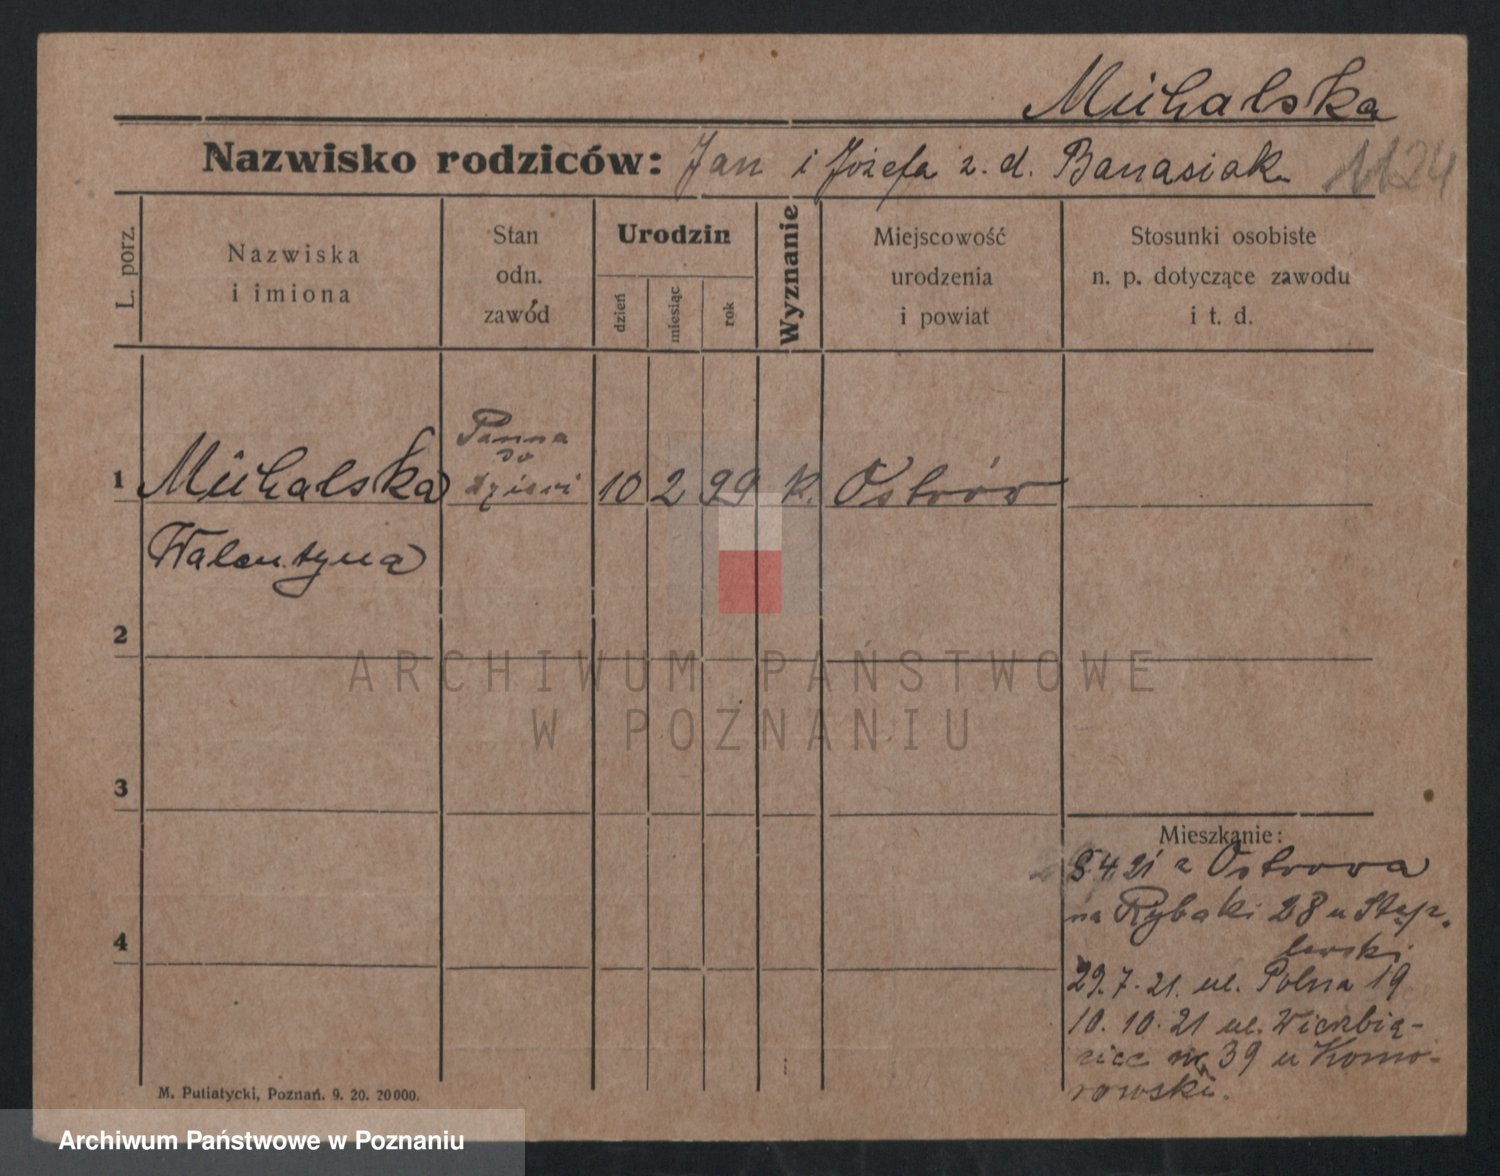 Michalska
Nazwisko rodziców: Jan i Józefa z. d. Banasiak 1124
L. porz.
Nazwiska
i imiona
Stan
odn.
zawód
Urodzin
dzień
miesiąc
rok
Wyznanie
Miejscowość
urodzenia
i powiat
Stosunki osobiste
n. p. dotyczące zawodu
i t. d.
Panna
do
dzieci
1 Michalska 10 2 99 k. Ostrów
Walentyna
2
ARCHIWUM PAŃSTWOWE
W POZNANIU
3
Mieszkanie:
5.4.21 z Ostrowa
na Rybaki 28 u
29.7.21. ul. Polna 19
10.10.21 ul. Wierzbię-
cice 39 u Komo-
rowski.
4
M. Putiatycki, Poznań. 9. 20. 20000.
Archiwum Państwowe w Poznaniu